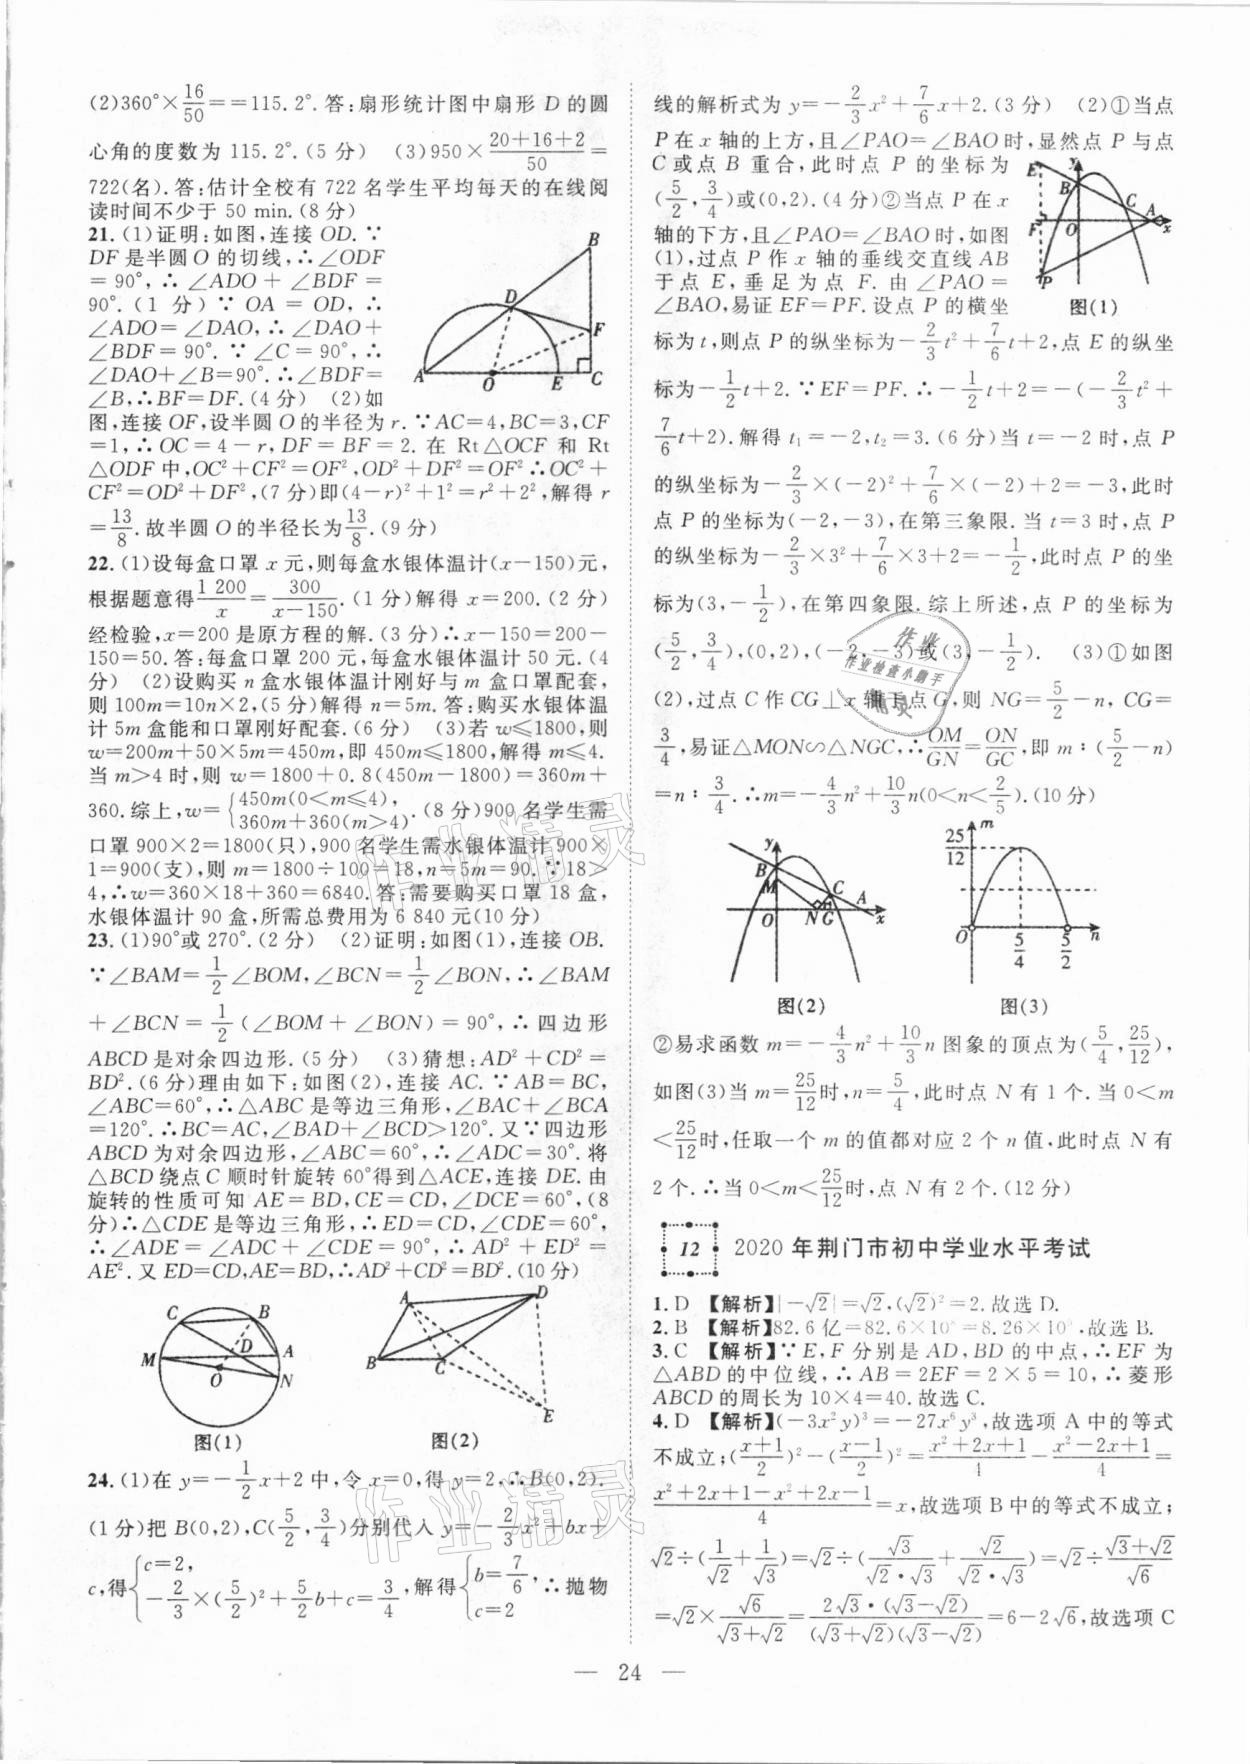 (2)360°×16/50==115.2°.答:扇形统计图中扇形 D 的圆
心角的度数为 115.2°.(5 分) (3)950×(20+16+2)/50=
722(名).答:估计全校有 722 名学生平均每天的在线阅
读时间不少于 50 min.(8分)
21.(1)证明:如图,连接 OD.∵
DF 是半圆 O 的切线,∴∠ODF
=90°,∴∠ADO+∠BDF=
90°.(1 分)∵OA=OD,∴
∠ADO=∠DAO,∴∠DAO+
∠BDF=90°.∵∠C=90°,∴
∠DAO+∠B=90°.∴∠BDF=
∠B,∴BF=DF.(4分) (2)如
图,连接 OF,设半圆 O 的半径为 r.∵AC=4,BC=3,CF
=1,∴OC=4-r,DF=BF=2.在 Rt△OCF 和 Rt
△ODF 中,OC²+CF²=OF²,OD²+DF²=OF²∴OC²+
CF²=OD²+DF²,(7 分)即(4-r)²+1²=r²+2²,解得 r
=13/8.故半圆 O 的半径长为13/8.(9分)
B
D
F
A
O
E
C
22.(1)设每盒口罩 x 元,则每盒水银体温计(x-150)元,
根据题意得1 200/x=300/(x-150).(1分)解得 x=200.(2分)
经检验,x=200 是原方程的解.(3分)∴x-150=200-
150=50.答:每盒口罩 200 元,每盒水银体温计 50 元.(4
分) (2)设购买 n 盒水银体温计刚好与 m 盒口罩配套,
则 100m=10n×2,(5分)解得 n=5m.答:购买水银体温
计 5m 盒能和口罩刚好配套.(6分) (3)若 w⩽1800,则
w=200m+50×5m=450m,即 450m⩽1800,解得 m⩽4.
当 m>4 时,则 w=1800+0.8(450m-1800)=360m+
360.综上,w={450m(0<m⩽4), 360m+360(m>4).(8分)900 名学生需
口罩 900×2=1800(只),900 名学生需水银体温计 900×
1=900(支),则 m=1800÷100=18,n=5m=90.∵18>
4,∴w=360×18+360=6840.答:需要购买口罩 18 盒,
水银体温计 90 盒,所需总费用为 6 840元(10分)
23.(1)90°或 270°.(2 分) (2)证明:如图(1),连接 OB.
∵∠BAM=1/2∠BOM,∠BCN=1/2∠BON,∴∠BAM
+∠BCN=1/2(∠BOM+∠BON)=90°,∴四边形
ABCD 是对余四边形.(5分) (3)猜想:AD²+CD²=
BD².(6分)理由如下:如图(2),连接 AC.∵AB=BC,
∠ABC=60°,∴△ABC 是等边三角形,∠BAC+∠BCA
=120°.∴BC=AC,∠BAD+∠BCD>120°.又∵四边形
ABCD 为对余四边形,∠ABC=60°,∴∠ADC=30°.将
△BCD 绕点 C 顺时针旋转 60°得到△ACE,连接 DE.由
旋转的性质可知 AE=BD,CE=CD,∠DCE=60°,(8
分)∴△CDE 是等边三角形,∴ED=CD,∠CDE=60°,
∴∠ADE=∠ADC+∠CDE=90°,∴AD²+ED²=
AE².又 ED=CD,AE=BD,∴AD²+CD²=BD².(10分)
C
B
D
M
A
O
N
图(1)
A
D
B
C
E
图(2)
24.(1)在 y=-1/2x+2 中,令 x=0,得 y=2,∴B(0,2).
(1分)把 B(0,2),C(5/2,3/4)分别代入 y=-2/3x²+bx+
c,得{c=2, -2/3×(5/2)²+5/2b+c=3/4,解得{b=7/6, c=2 ∴抛物
线的解析式为 y=-2/3x²+7/6x+2.(3 分) (2)①当点
P 在 x 轴的上方,且∠PAO=∠BAO 时,显然点 P 与点
C 或点 B 重合,此时点 P 的坐标为
(5/2,3/4)或(0,2).(4分)②当点 P 在 x
轴的下方,且∠PAO=∠BAO 时,如图
(1),过点 P 作 x 轴的垂线交直线 AB
于点 E,垂足为点 F.由∠PAO=
∠BAO,易证 EF=PF.设点 P 的横坐
标为 t,则点 P 的纵坐标为-2/3t²+7/6t+2,点 E 的纵坐
标为-1/2t+2.∵EF=PF.∴-1/2t+2=-(-2/3t²+
7/6t+2).解得 t₁=-2,t₂=3.(6分)当 t=-2 时,点 P
的纵坐标为-2/3×(-2)²+7/6×(-2)+2=-3,此时
点 P 的坐标为(-2,-3),在第三象限.当 t=3 时,点 P
的纵坐标为-2/3×3²+7/6×3+2=-1/2,此时点 P 的坐
标为(3,-1/2),在第四象限.综上所述,点 P 的坐标为
(5/2,3/4),(0,2),(-2,-3)或(3,-1/2). (3)①如图
(2),过点 C 作 CG⊥x 轴于点 G,则 NG=5/2-n,CG=
3/4,易证△MON∽△NGC,∴OM/GN=ON/GC,即 m:(5/2-n)
=n:3/4.∴m=-4/3n²+10/3n(0<n<2/5).(10分)
E
y
B
C
A
F
O
x
P
图(1)
y
B
M
C
A
O
N
G
x
图(2)
m
25/12
O
5/4
5/2
n
图(3)
②易求函数 m=-4/3n²+10/3n 图象的顶点为(5/4,25/12),
如图(3)当 m=25/12时,n=5/4,此时点 N 有 1 个.当 0<m
<25/12时,任取一个 m 的值都对应 2 个 n 值,此时点 N 有
2 个.∴当 0<m<25/12时,点 N 有 2 个.(12分)
12 2020 年荆门市初中学业水平考试
1.D 【解析】|-√2|=√2,(√2)²=2.故选 D.
2.B 【解析】82.6 亿=82.6×10 =8.26×10 .故选 B.
3.C 【解析】∵E,F 分别是 AD,BD 的中点,∴EF 为
△ABD 的中位线,∴AB=2EF=2×5=10,∴菱形
ABCD 的周长为 10×4=40.故选 C.
4.D 【解析】(-3x²y)³=-27x⁶y³,故选项 A 中的等式
不成立;((x+1)/2)²-((x-1)/2)²=(x²+2x+1)/4-(x²-2x+1)/4=
(x²+2x+1-x²+2x-1)/4=x,故选项 B 中的等式不成立;
√2÷(1/√2+1/√3)=√2÷(√3/(√2·√3)+√2/(√2·√3))=√2÷(√3+√2)/√6
=√2×√6/(√3+√2)=2√3·(√3-√2)/((√3+√2)(√3-√2))=6-2√6,故选项 C
— 24 —
作业精灵
作业精灵
作业
作业检查小助手
精灵